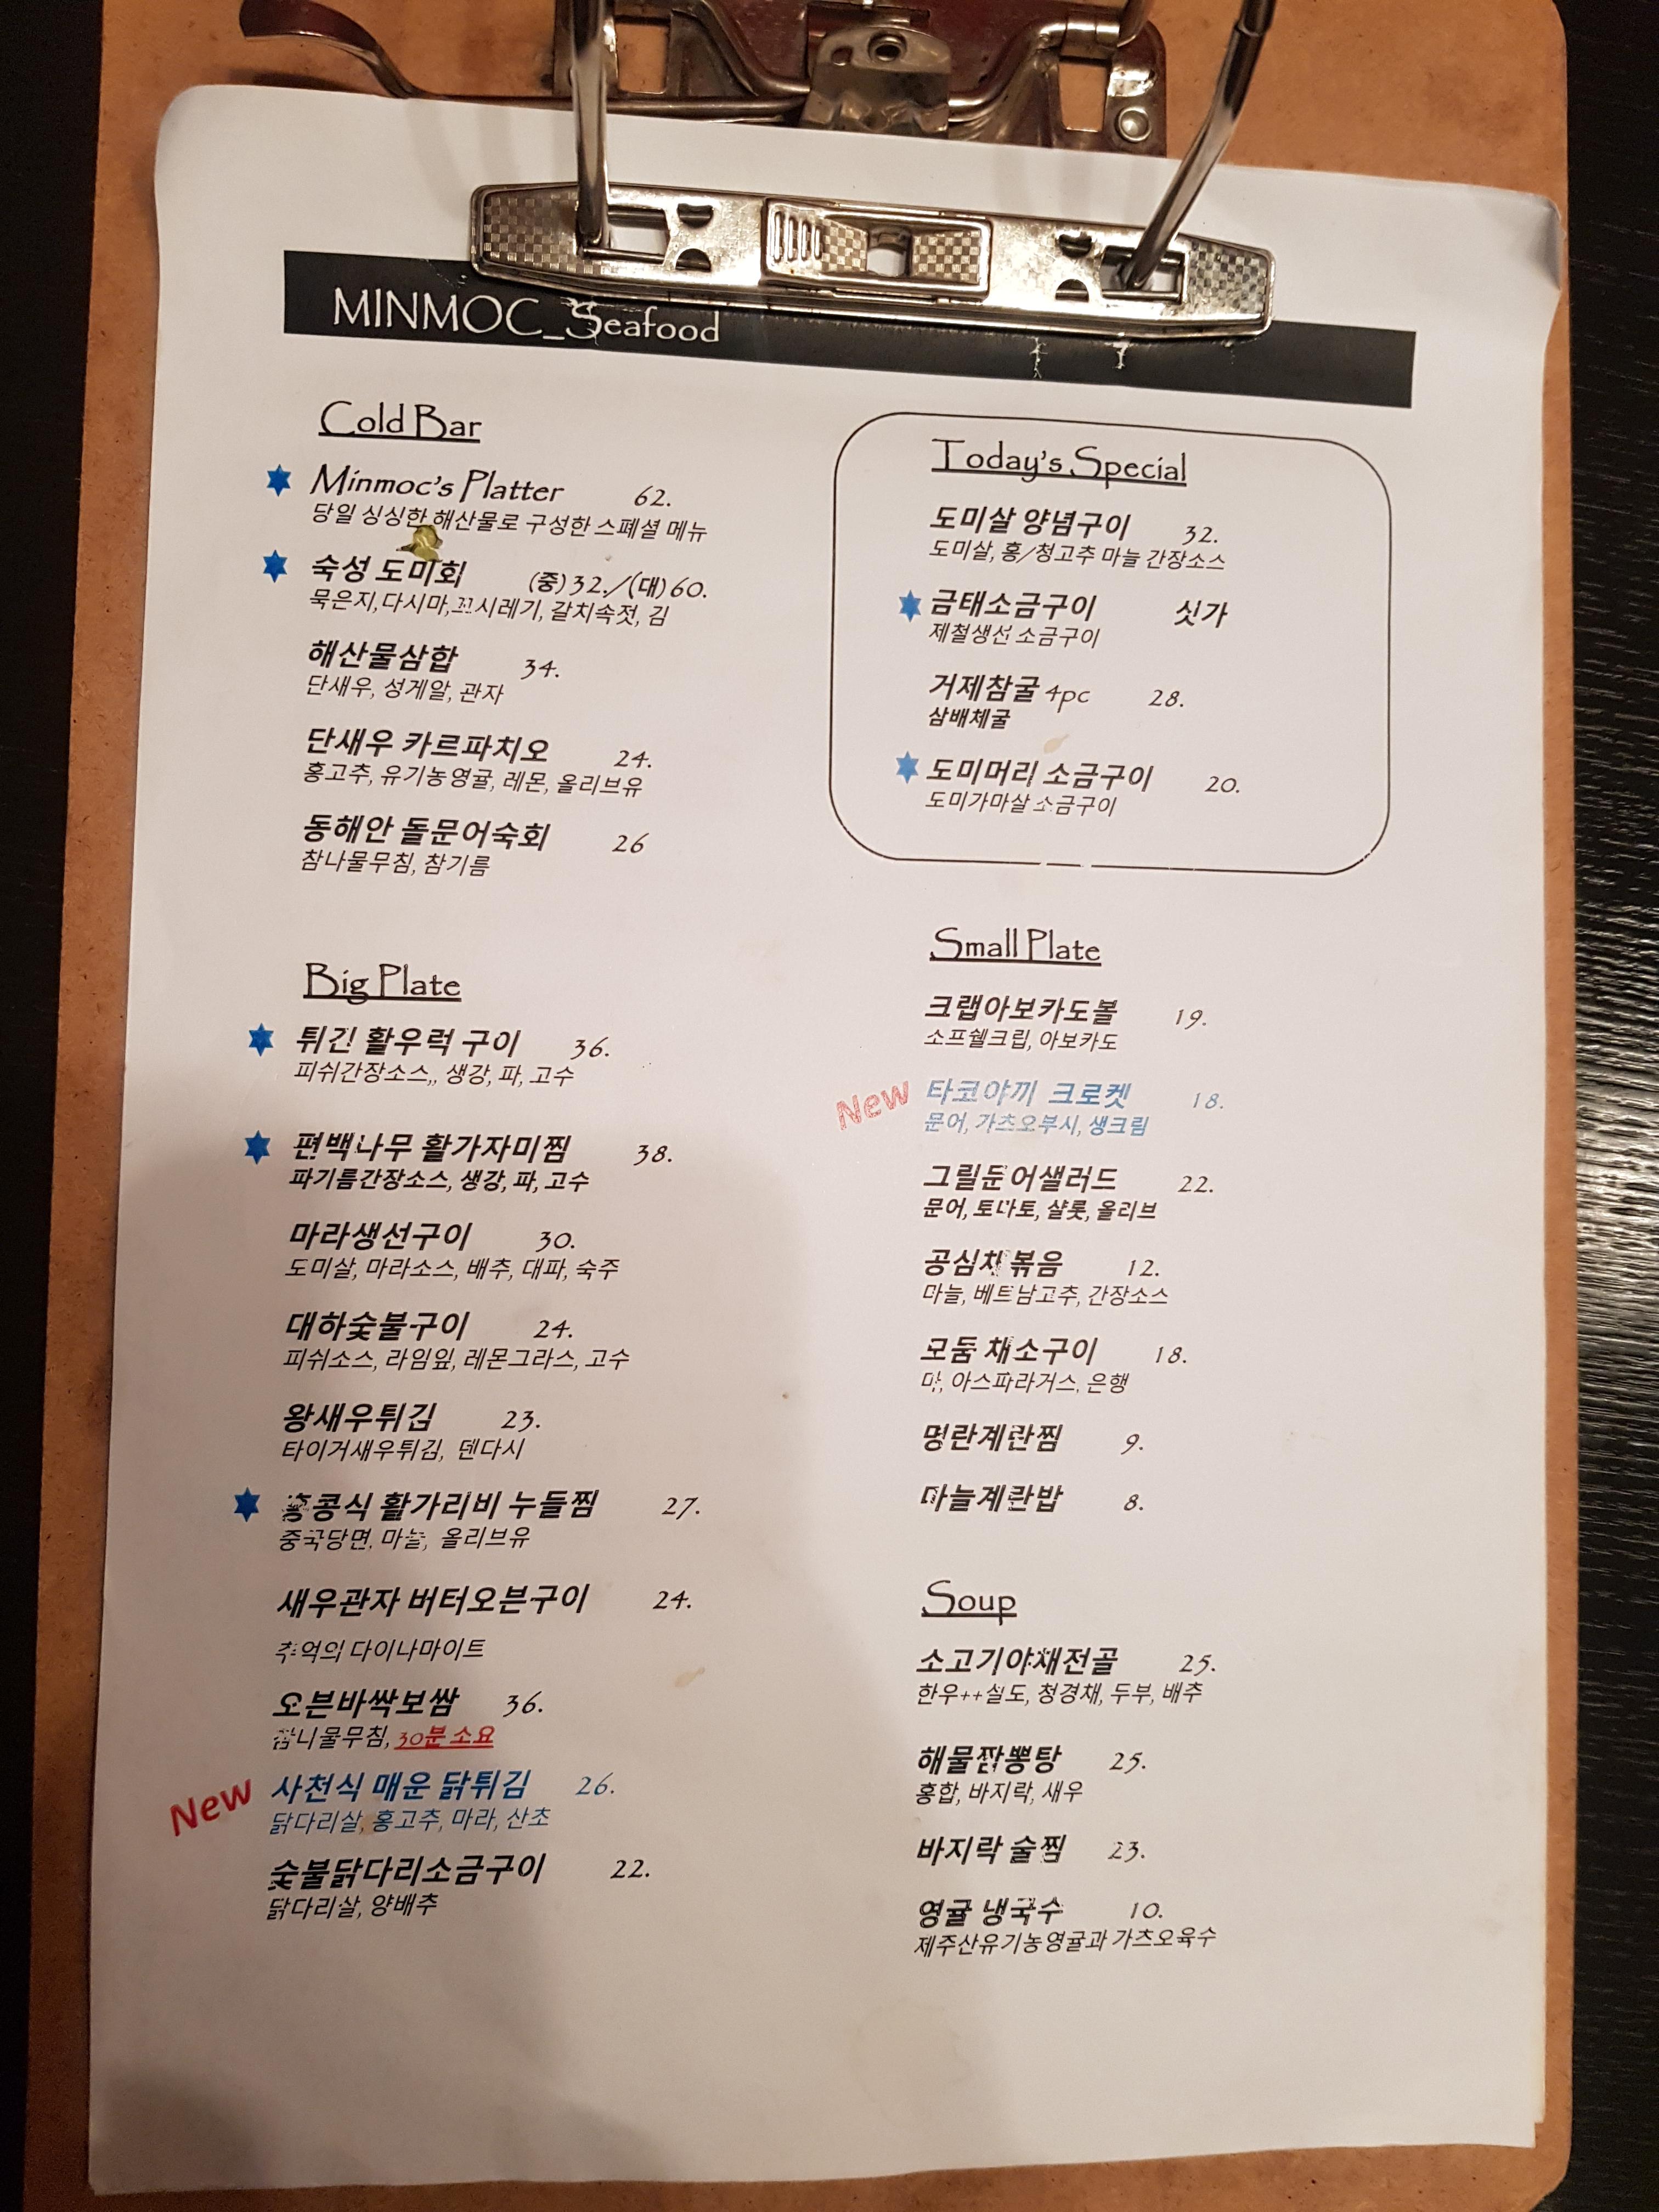 MINMOC_Seafood
Cold Bar
Minmoc's Platter 62.
당일 싱싱한 해산물로 구성한 스폐셜 메뉴
숙성 도미회 (중)32./(대)60.
묵은지,다시마,꼬시레기, 갈치속젓, 김
해산물삼합 34.
단새우, 성게알, 관자
단새우 카르파치오 24.
홍고추, 유기농영귤, 레몬, 올리브유
동해안 돌문어숙회 26
참나물무침, 참기름
Big Plate
튀긴 활우럭 구이 36.
피쉬간장소스,, 생강, 파, 고수
편백나무 활가자미찜 38.
파기름간장소스, 생강, 파, 고수
마라생선구이 30.
도미살, 마라소스, 배추, 대파, 숙주
대하숯불구이 24.
피쉬소스, 라임잎, 레몬그라스, 고수
왕새우튀김 23.
타이거새우튀김, 덴다시
홍콩식 활가리비 누들찜 27.
중국당면, 마늘, 올리브유
새우관자 버터오븐구이 24.
추억의 다이나마이트
오븐바싹보쌈 36.
참나물무침, 30분 소요
New
사천식 매운 닭튀김 26.
닭다리살, 홍고추, 마라, 산초
숯불닭다리소금구이 22.
닭다리살, 양배추
Today's Special
도미살 양념구이 32.
도미살, 홍/청고추 마늘 간장소스
금태소금구이 싯가
제철생선 소금구이
거제참굴 4pc 28.
삼배체굴
도미머리 소금구이 20.
도미가마살 소금구이
Small Plate
크랩아보카도볼 19.
소프쉘크립, 아보카도
New
타코야끼 크로켓 18.
문어, 가츠오부시, 생크림
그릴문어샐러드 22.
문어, 토마토, 샬롯, 올리브
공심채볶음 12.
마늘, 베트남고추, 간장소스
모둠 채소구이 18.
마, 아스파라거스, 은행
명란계란찜 9.
마늘계란밥 8.
Soup
소고기야채전골 25.
한우++설도, 청경채, 두부, 배추
해물짬뽕탕 25.
홍합, 바지락, 새우
바지락 술찜 23.
영귤 냉국수 10.
제주산유기농영귤과 가츠오육수